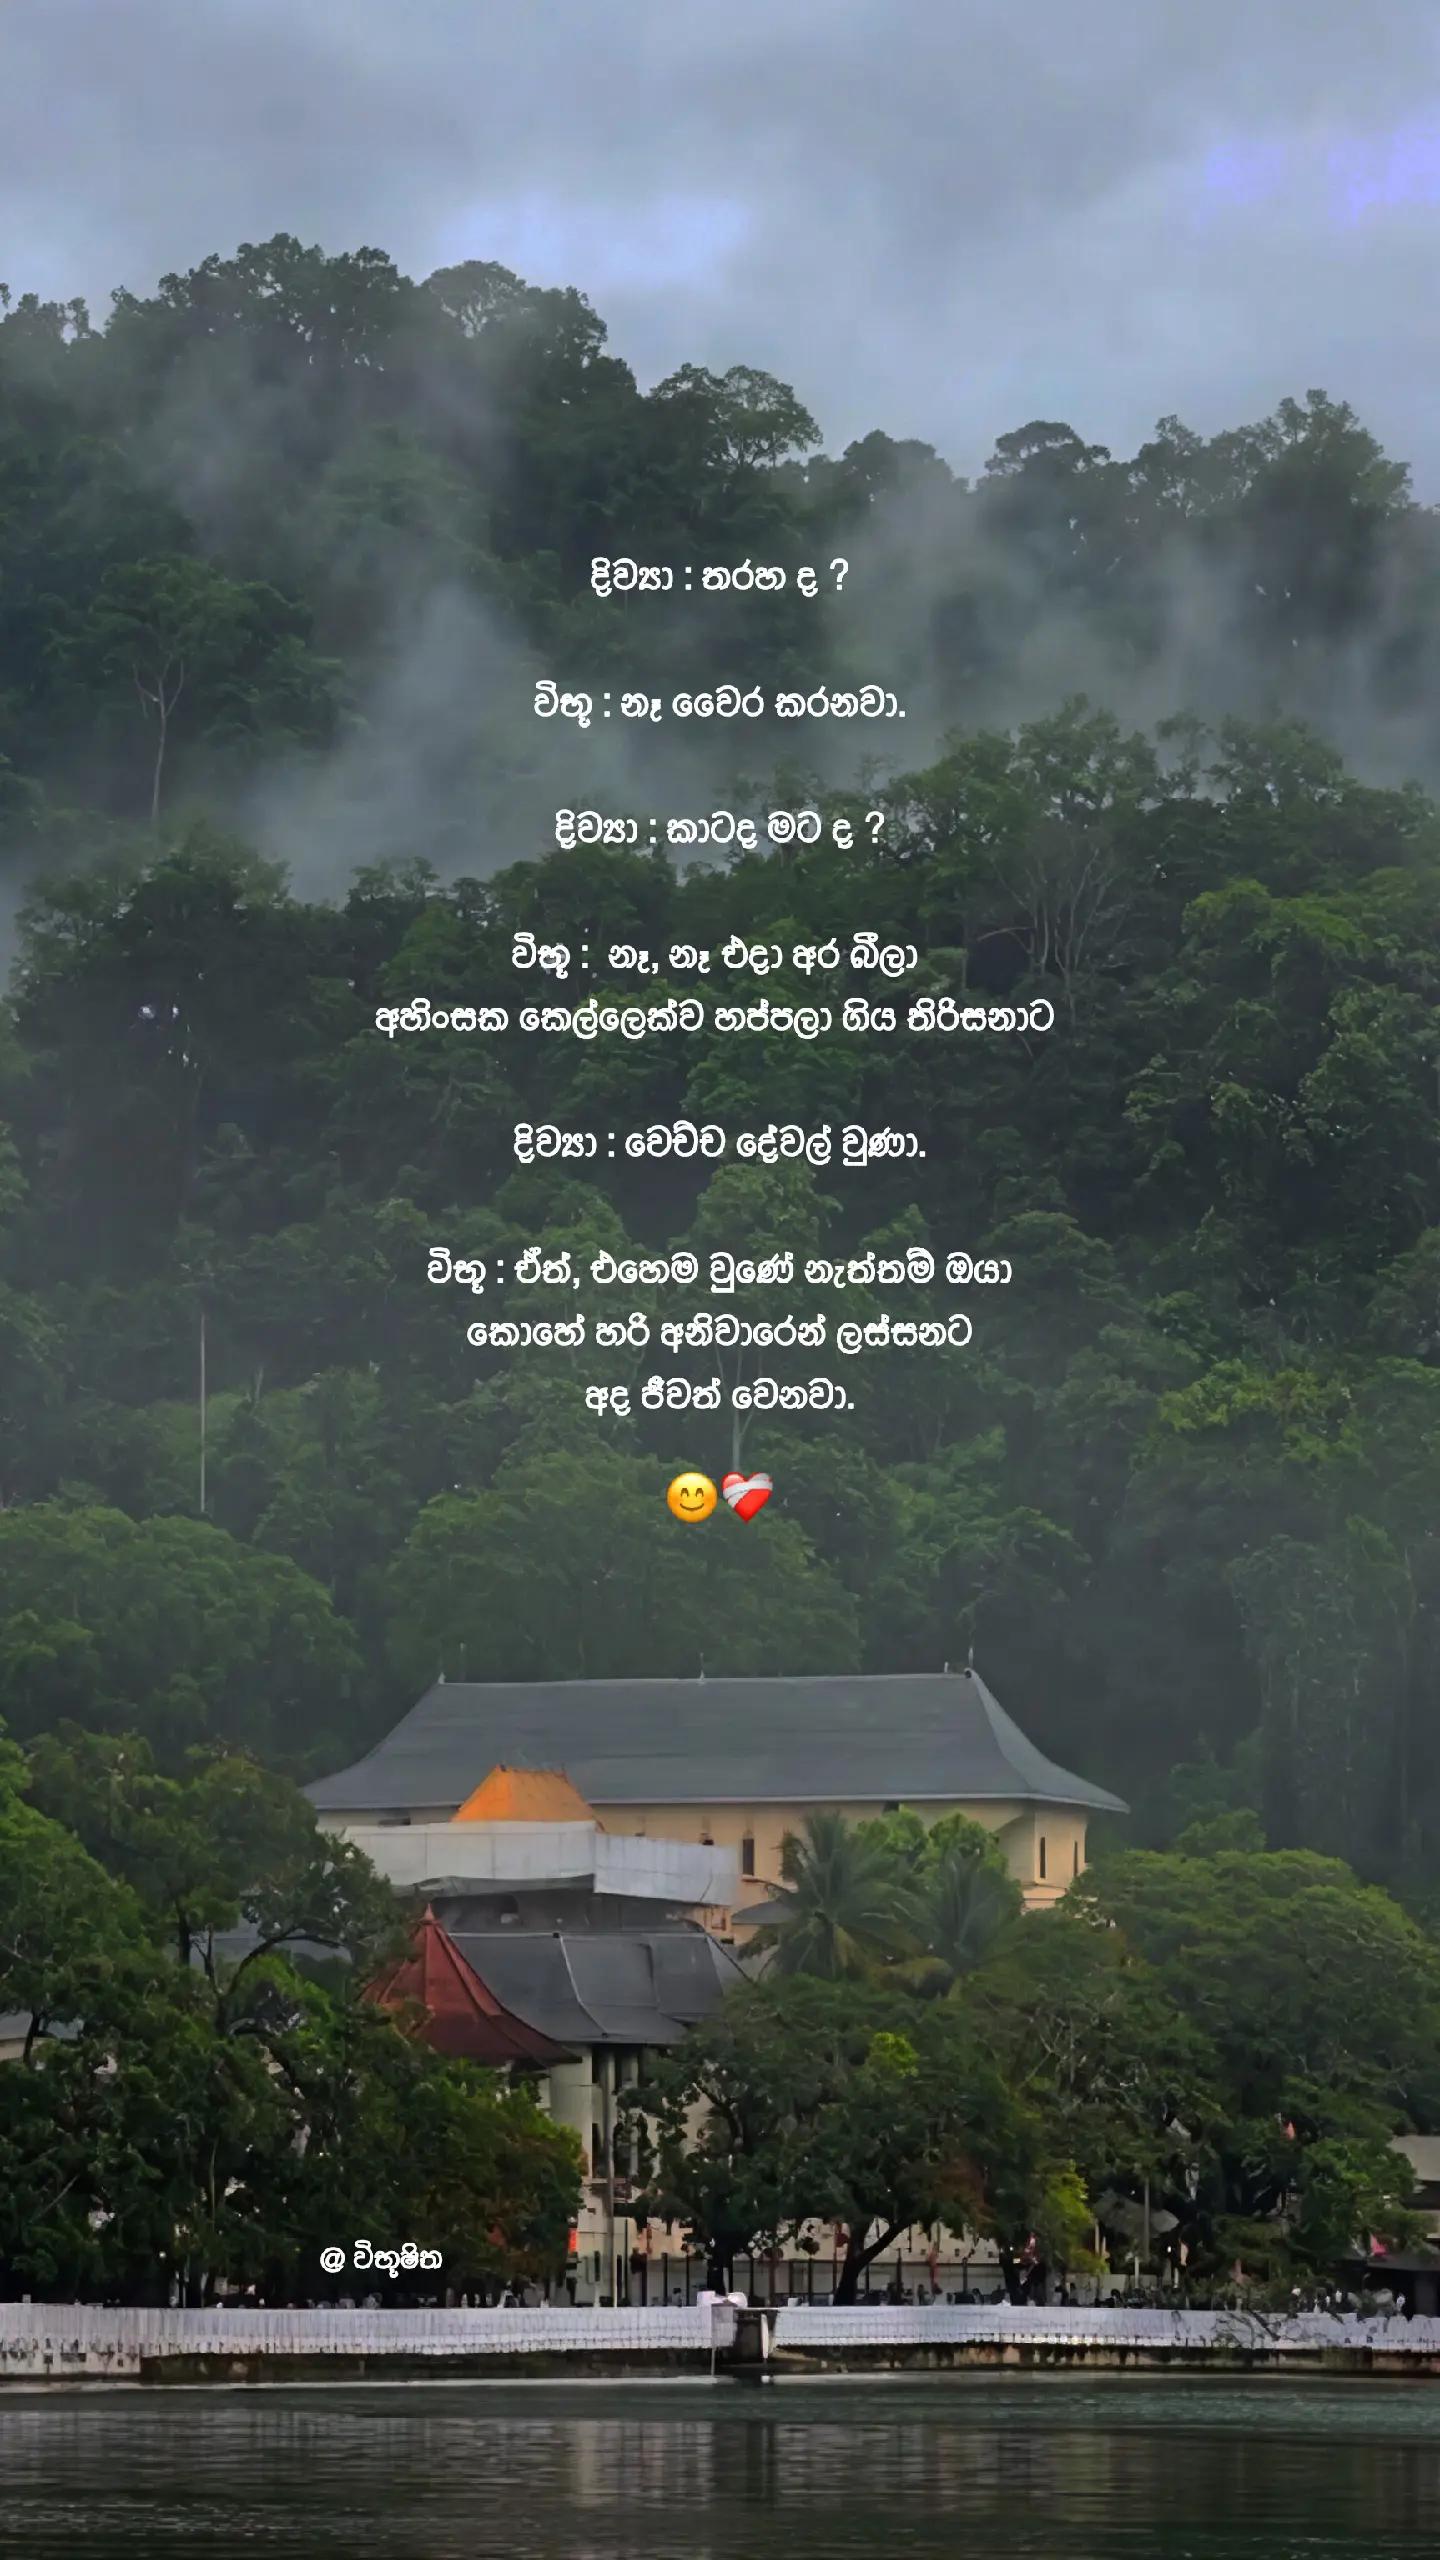 දිව්‍යා : තරහ ද ?
විභූ : නෑ වෛර කරනවා.
දිව්‍යා : කාටද මට ද ?
විභූ : නෑ, නෑ එදා අර බීලා
අහිංසක කෙල්ලෙක්ව හප්පලා ගිය තිරිසනාට
දිව්‍යා : වෙච්ච දේවල් වුණා.
විභූ : ඒත්, එහෙම වුණේ නැත්තම් ඔයා
කොහේ හරි අනිවාරෙන් ලස්සනට
අද ජීවත් වෙනවා.
😊❤️‍🩹
@ විභූෂිත